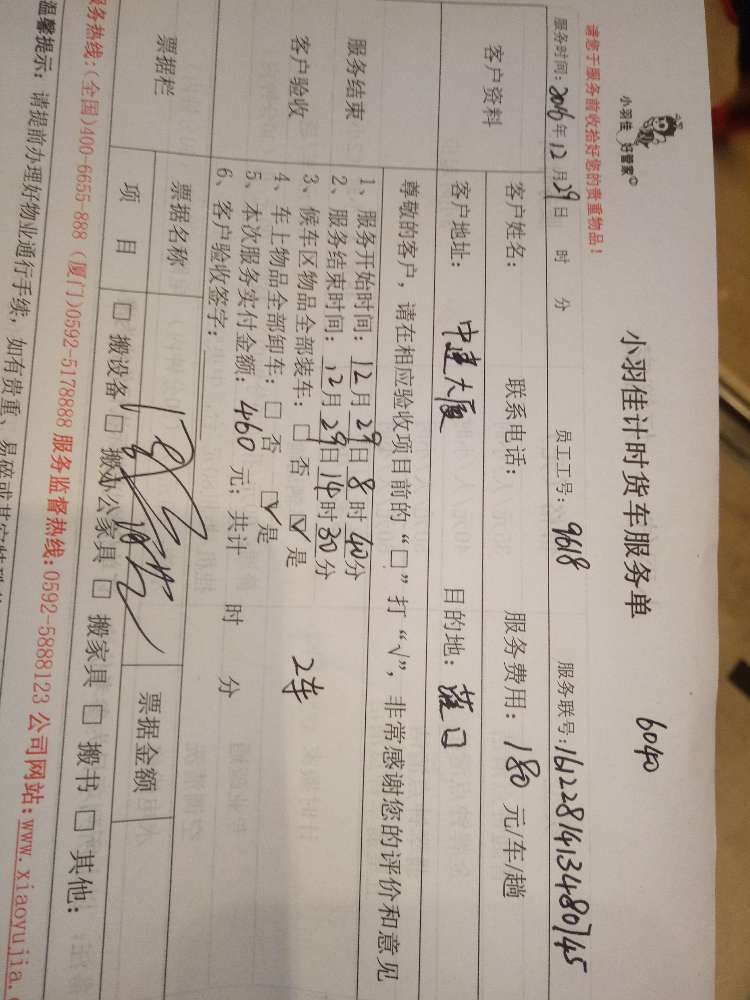 小羽佳 好管家
小羽佳计时货车服务单
6040
请您于服务前收拾好您的贵重物品！
服务时间：2016年12月29日 时 分 员工工号：9618 服务联号：161228141348074​5
客户资料
客户姓名： 联系电话： 服务费用：180元/车/趟
客户地址：中建大厦 目的地：蔡口
尊敬的客户，请在相应验收项目前的“□”打“√”，非常感谢您的评价和意见
服务结束
客户验收
1、服务开始时间：12月29日8时40分
2、服务结束时间：12月29日14时30分
3、候车区物品全部装车：□ 否 ☑ 是
4、车上物品全部卸车：□ 否 ☑ 是
2车
5、本次服务实付金额：460元；共计 时 分
6、客户验收签字：
票据栏
票据名称 票据金额
项 目 □ 搬设备 □ 搬办公家具 □ 搬家具 □ 搬书 □ 其他：
服务热线：(全国)400-6655-888 (厦门)0592-5178888 服务监督热线：0592-5888123 公司网站：www.xiaoyujia.
温馨提示：请提前办理好物业通行手续，如有贵重、易碎或其它特殊